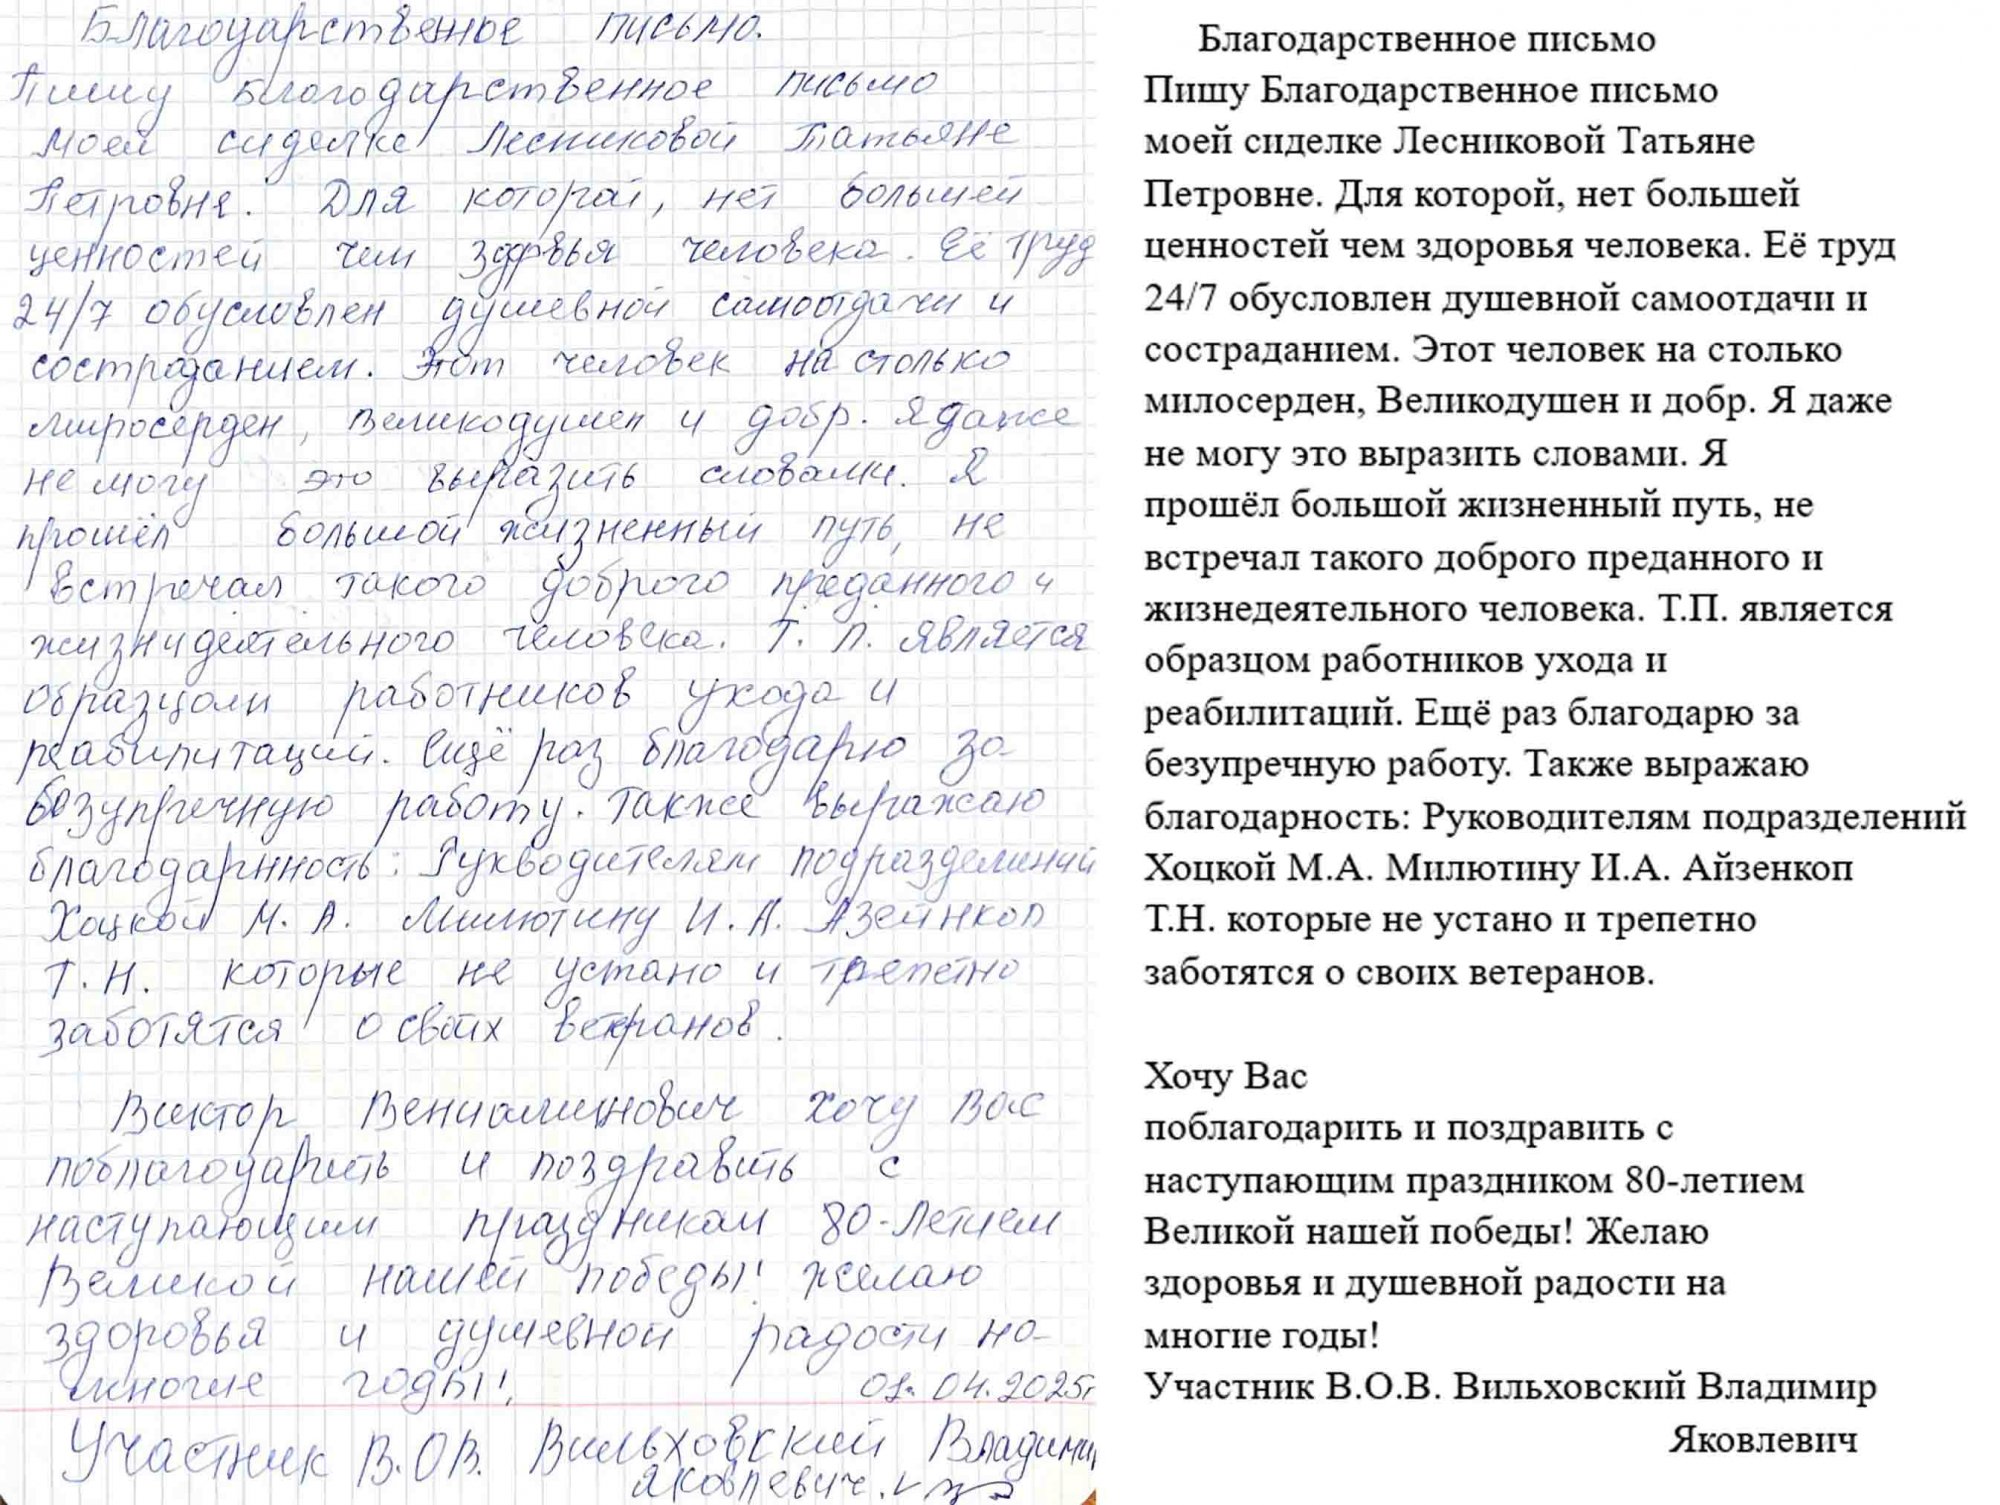 Благодарственное письмо.
Пишу Благодарственное письмо
моей сиделке Лесниковой Татьяне
Петровне. Для которой, нет большей
ценностей чем здоровья человека. Её труд
24/7 обусловлен душевной самоотдачи и
состраданием. Этот человек на столько
миросерден, Великодушен и добр. Я даже
не могу это выразить словами. Я
прошёл большой жизненный путь, не
встречал такого доброго преданного и
жизнидеятельного человека. Т. П. является
образцом работников ухода и
реабилитаций. Ещё раз благодарю за
безупречную работу. Также выражаю
благодарнность: Руководителям подразделиний
Хоцкой М. А. Милютину И. А. Азейнкоп
Т. Н. которые не устано и трепетно
заботятся о своих ветеранов.
Виктор Вениаминович хочу Вас
поблагодарить и поздравить с
наступающим праздником 80-Летием
Великой нашей победы! желаю
здоровья и душевной радости на
многие годы!
01.04.2025г
Участник В.О.В. Вильховский Владимир
Яковлевич.
Благодарственное письмо
Пишу Благодарственное письмо
моей сиделке Лесниковой Татьяне
Петровне. Для которой, нет большей
ценностей чем здоровья человека. Её труд
24/7 обусловлен душевной самоотдачи и
состраданием. Этот человек на столько
милосерден, Великодушен и добр. Я даже
не могу это выразить словами. Я
прошёл большой жизненный путь, не
встречал такого доброго преданного и
жизнедеятельного человека. Т.П. является
образцом работников ухода и
реабилитаций. Ещё раз благодарю за
безупречную работу. Также выражаю
благодарность: Руководителям подразделений
Хоцкой М.А. Милютину И.А. Айзенкоп
Т.Н. которые не устано и трепетно
заботятся о своих ветеранов.
Хочу Вас
поблагодарить и поздравить с
наступающим праздником 80-летием
Великой нашей победы! Желаю
здоровья и душевной радости на
многие годы!
Участник В.О.В. Вильховский Владимир
Яковлевич